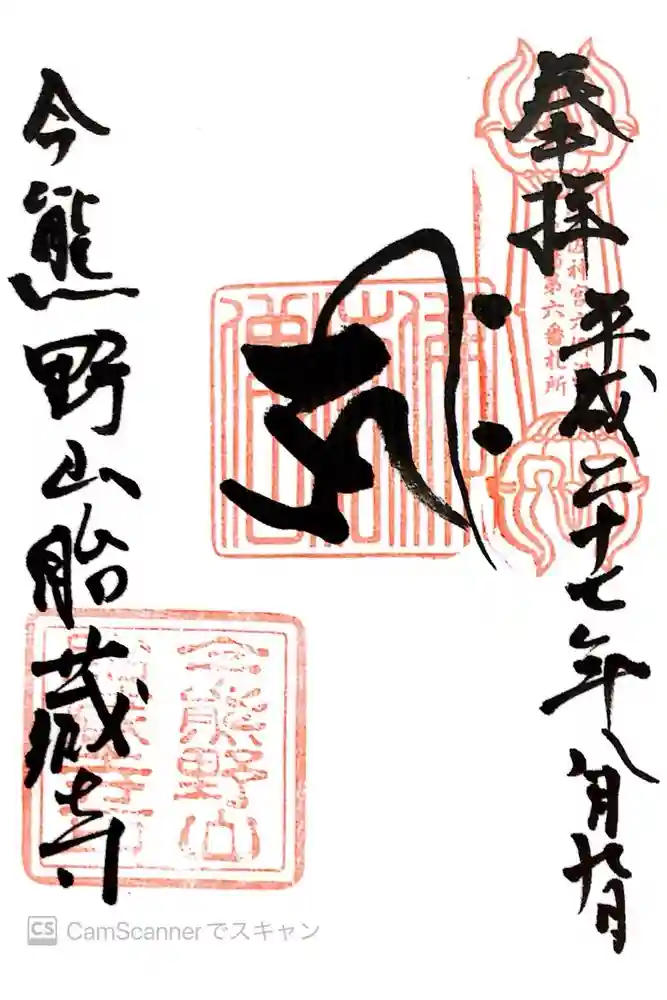 奉拝 平成二十七年八月九日
第六番札所
今熊野山胎蔵寺
今熊野山
CS CamScannerでスキャン